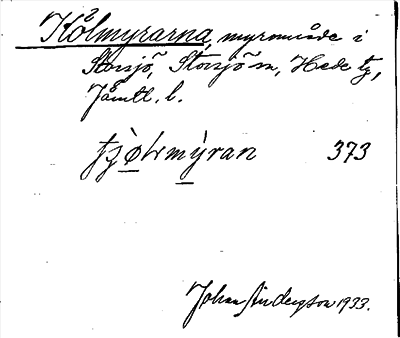 Kölmyrarna, myrområde i
Storsjö, Storsjö sn, Hede tg,
Jämtl. l.
373
Johan Andersson 1933.